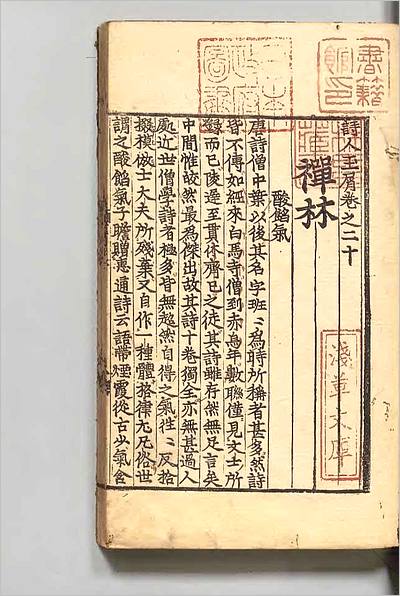 詩人玉屑卷之二十
禪林
酸餡氣
唐詩僧中葉以後其名字班〻為時所稱者甚多然詩
皆不傳如經來白馬寺僧到赤烏年數聯僅見文士所
録而已陵遲至貫休齊己之徒其詩雖存然無足言矣
中間惟皎然最為傑出故其詩十卷獨全亦無甚過人
處近世僧學詩者極多皆無超然自得之氣徃〻反拾
掇模倣士大夫所殘棄又自作一種體格律尤凡俗世
謂之酸餡氣子瞻贈惠通詩云語帶煙霞從古少氣含
書籍
館印
日本
政府
圖書
淺草文庫